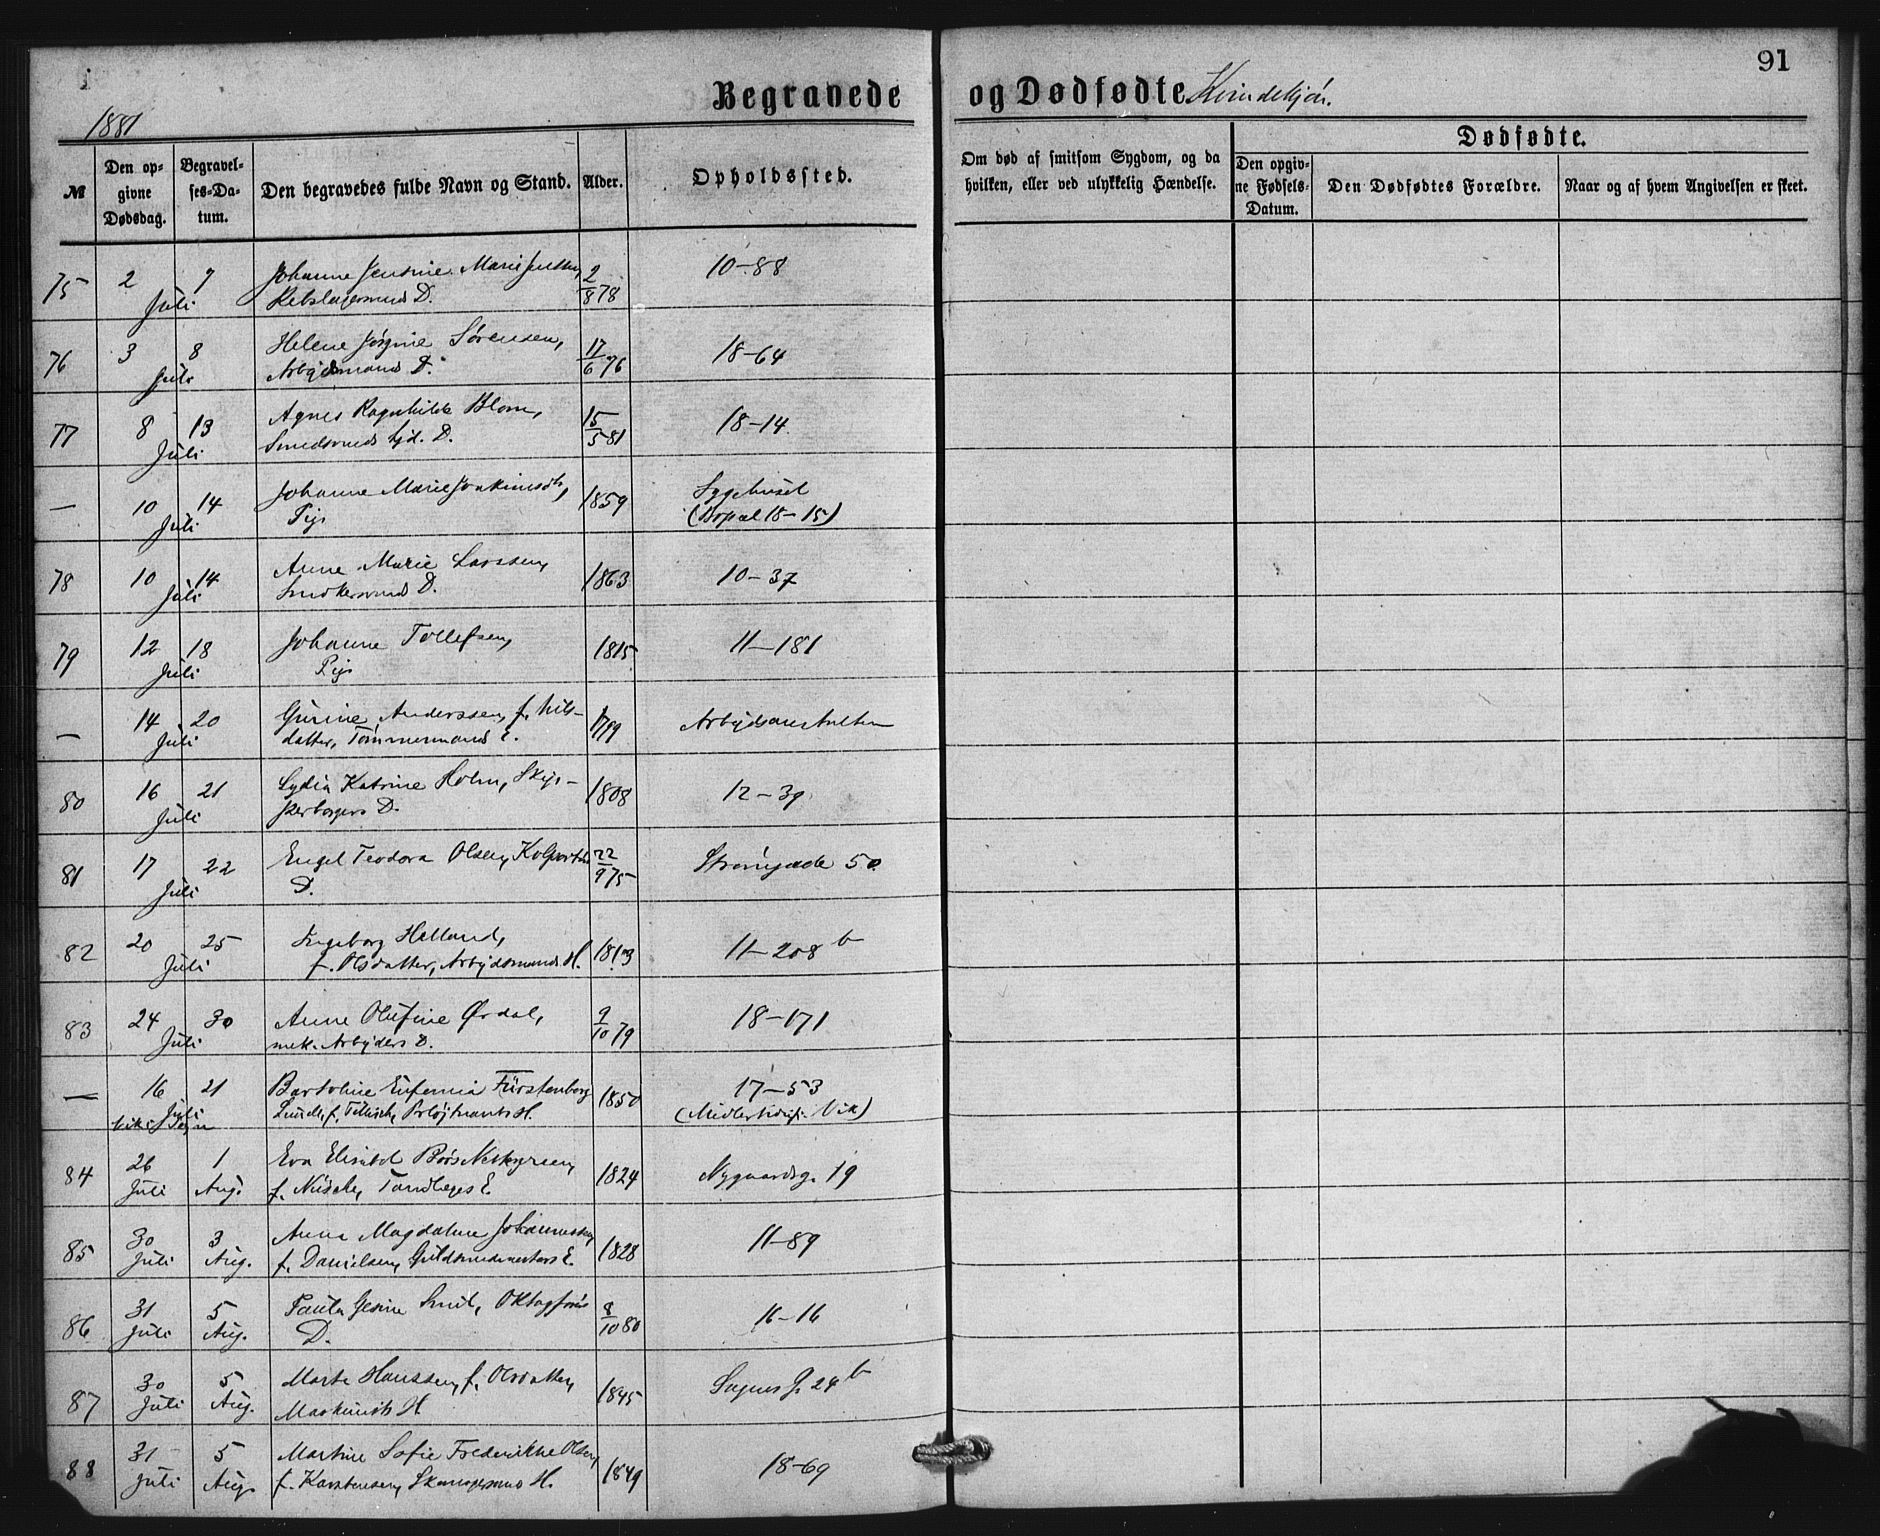 91
Begravede og Dødfødte Kvindekjön.
1881
№
Den opgivne Dødsdag.
Begravelses-Datum.
Den begravedes fulde Navn og Stand.
Alder.
Opholdssted.
Om død af smitsom Sygdom, og da hvilken, eller ved ulykkelig Hændelse.
Dødfødte.
Den opgivne Fødsels-Datum.
Den Dødfødtes Forældre.
Naar og af hvem Angivelsen er skeet.
75 2 7 Johanne Jensine Marie 2/8 78 10-88
Juli Rebslagersvends D.
76 3 8 Helene Jørgine Sørensen, 17/6 76 18-64
Juli Arbejdsmands D.
77 8 13 Agnes Ragnhilde Blom, 15/5 81 18-14
Juli Smedsvends D.
— 10 14 Johanne Marie 1859 Sygehuset
Juli Pige (Bopæl 18-15)
78 10 14 Anne Marie Larssen, 1863 10-37
Juli Snedkersvends D.
79 12 18 Johanne Tollefsen, 1815 11-181
Juli Pige
— 14 20 Gurine Anderssen, f. Nils- Arbejdsanstalten
Juli datter, Tömmermands E.
80 16 21 Lydia Katrine Holm, Skip- 1808 12-39
Juli perborgers D.
81 17 22 Engel Teodora Olsen, 22/9 75 Strangade 50
Juli D.
82 20 25 Ingeborg Helland, 11-208 b
Juli f. Olsdatter, Arbejdsmands H.
83 24 30 Anne Olufine Ørdal, 9/10 79 18-171
Juli mek. Arbejders D.
— 16 21 Bartoline Eufemia Fürstenberg 1850 17-53
Juli Vik i Sogn Lund, f. H. (Midlertidig: Vik)
84 26 1 Eva 1824 Nygaardsg. 19
Juli Aug. f. Tandlæges E.
85 30 3 Anna Magdalene Johannesen, 1828 11-89
Juli Aug. f. Danielsen, Guldsmedmesters E.
86 31 5 Paula Gesine 8/10 80 16-16
Juli Aug. D.
87 30 5 Marte Hanssen, f. Olsdatter, 1845 24 b
Juli Aug. Maskinists H
88 31 5 Martine Sofie Frederikke Olsen, 1849 18-69
Juli Aug. f. Karstensen, H.